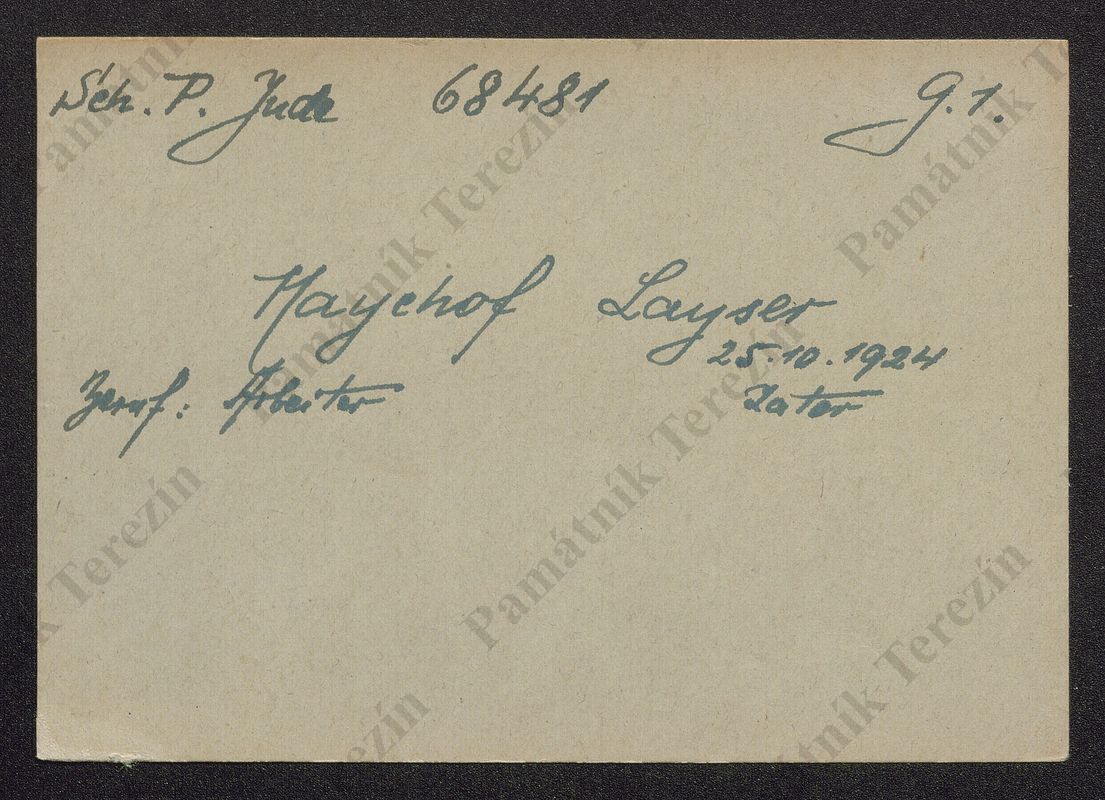 Sch. P. Jude 68481 9.1.
Haychof Layser
25.10.1924
Beruf: Arbeiter Zator
Památník Terezín